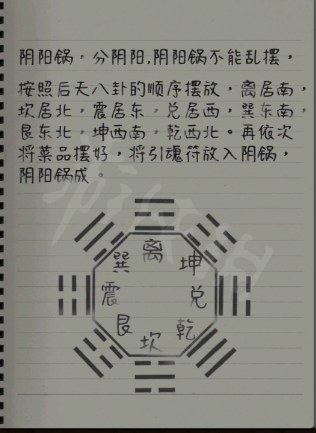 阴阳锅，分阴阳，阴阳锅不能乱摆，
按照后天八卦的顺序摆放，离居南，
坎居北，震居东，兑居西，巽东南，
艮东北，坤西南，乾西北。再依次
将菜品摆好，将引魂符放入阴锅，
阴阳锅成。
离
巽 坤
震 兑
艮 乾
坎